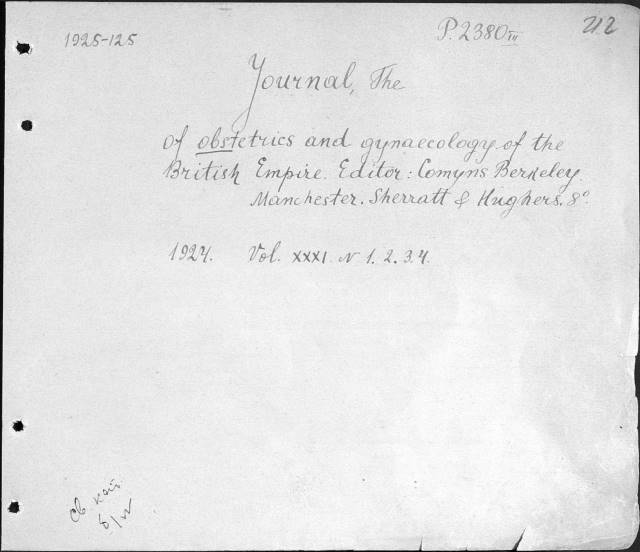 1925-125
P.2380 III
212
Journal, The
of obstetrics and gynaecology of the
British Empire. Editor: Comyns Berkeley.
Manchester. Sherratt & Hughers. 8°.
1924. Vol. XXXI N 1. 2. 3. 4.
Св. кат.
б/н